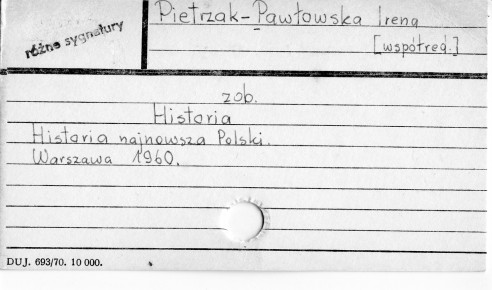 Pietrzak-Pawłowska Irena
różne sygnatury
[współred.]
zob.
Historia
Historia najnowsza Polski.
Warszawa 1960.
DUJ. 693/70. 10 000.